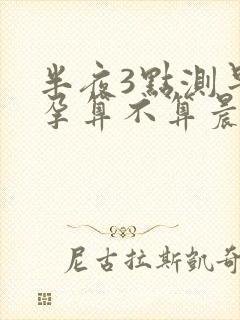 半夜3點測
孕算不算晨
尼古拉斯凱奇